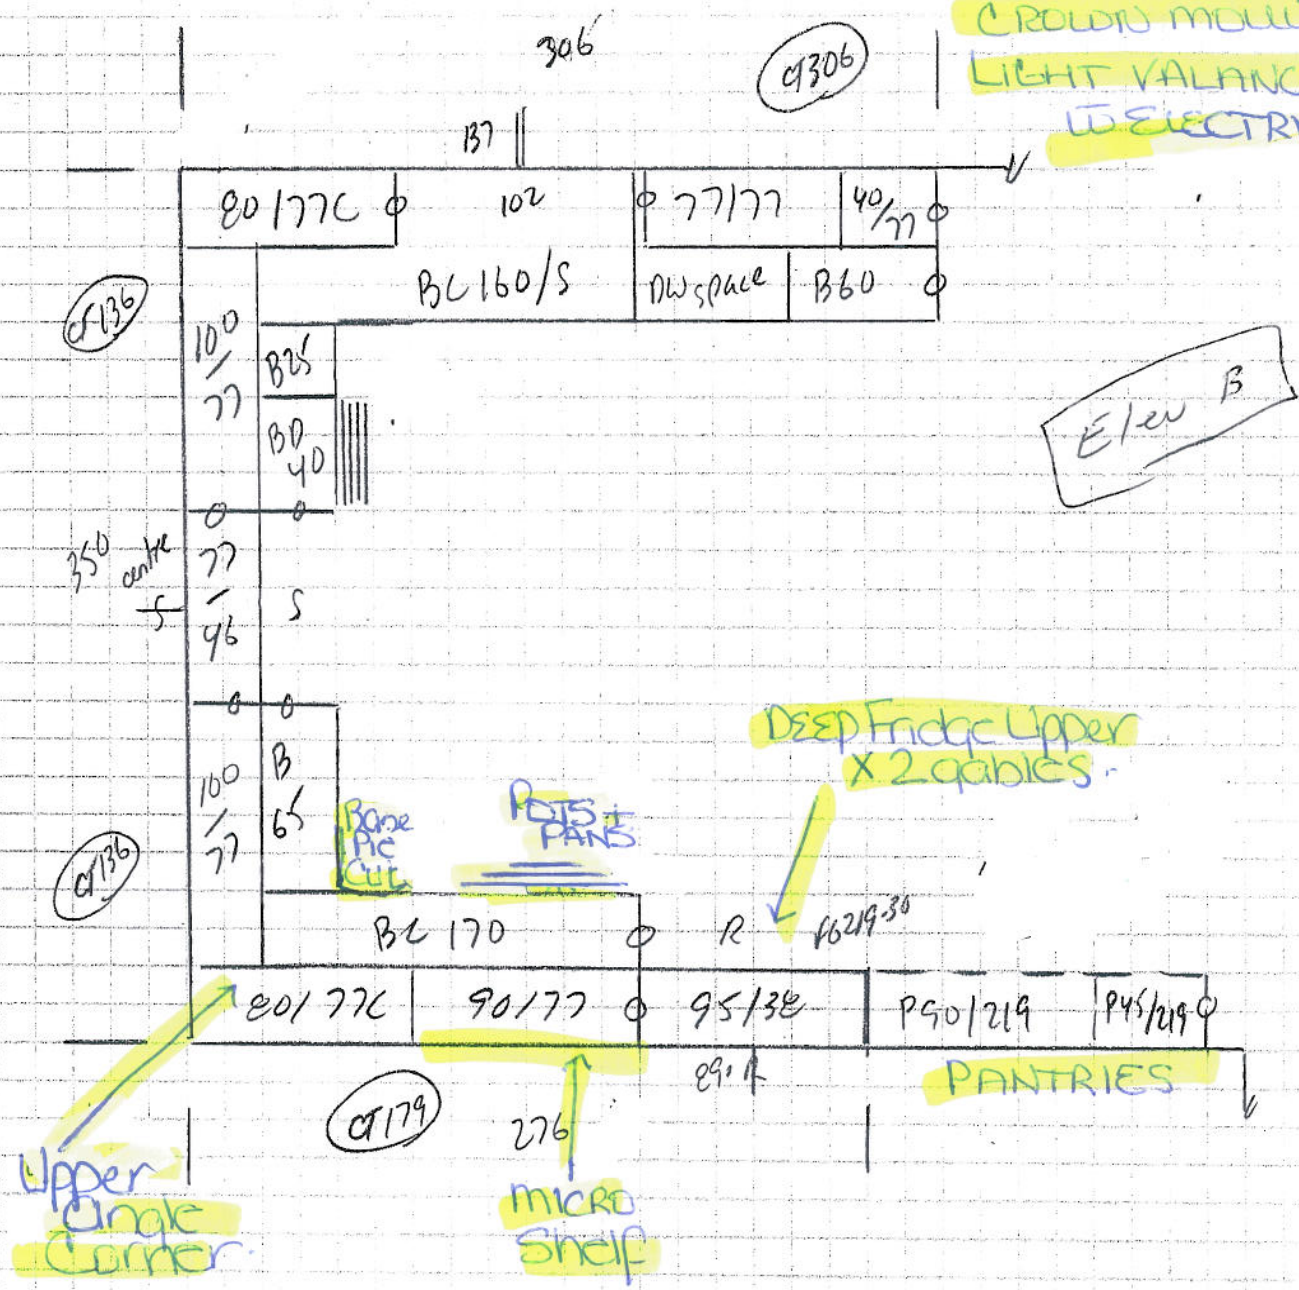 CROWN MOUL
306
CT306
LIGHT VALANC
W ELECTRI
137
80/77C
102
77/77
40/77
BC160/S
DW space
B60
CT136
100/77
B25
BD
40
Elev B
350 centre
77/46
S
DEEP Fridge Upper
X 2 gables.
100/77
B
65
Base
Pie
Cut.
POTS +
PANS
CT136
BC 170
R
FG219-30
80/77C
90/77
95/38
P90/219
P45/219
PANTRIES
CT179
276
Upper
angle
Corner.
MICRO
Shelf